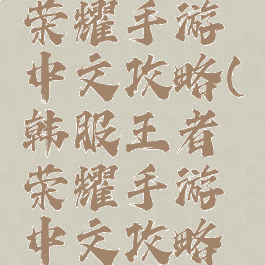 荣耀手游
中文攻略(
韩服王者
荣耀手游
中文攻略